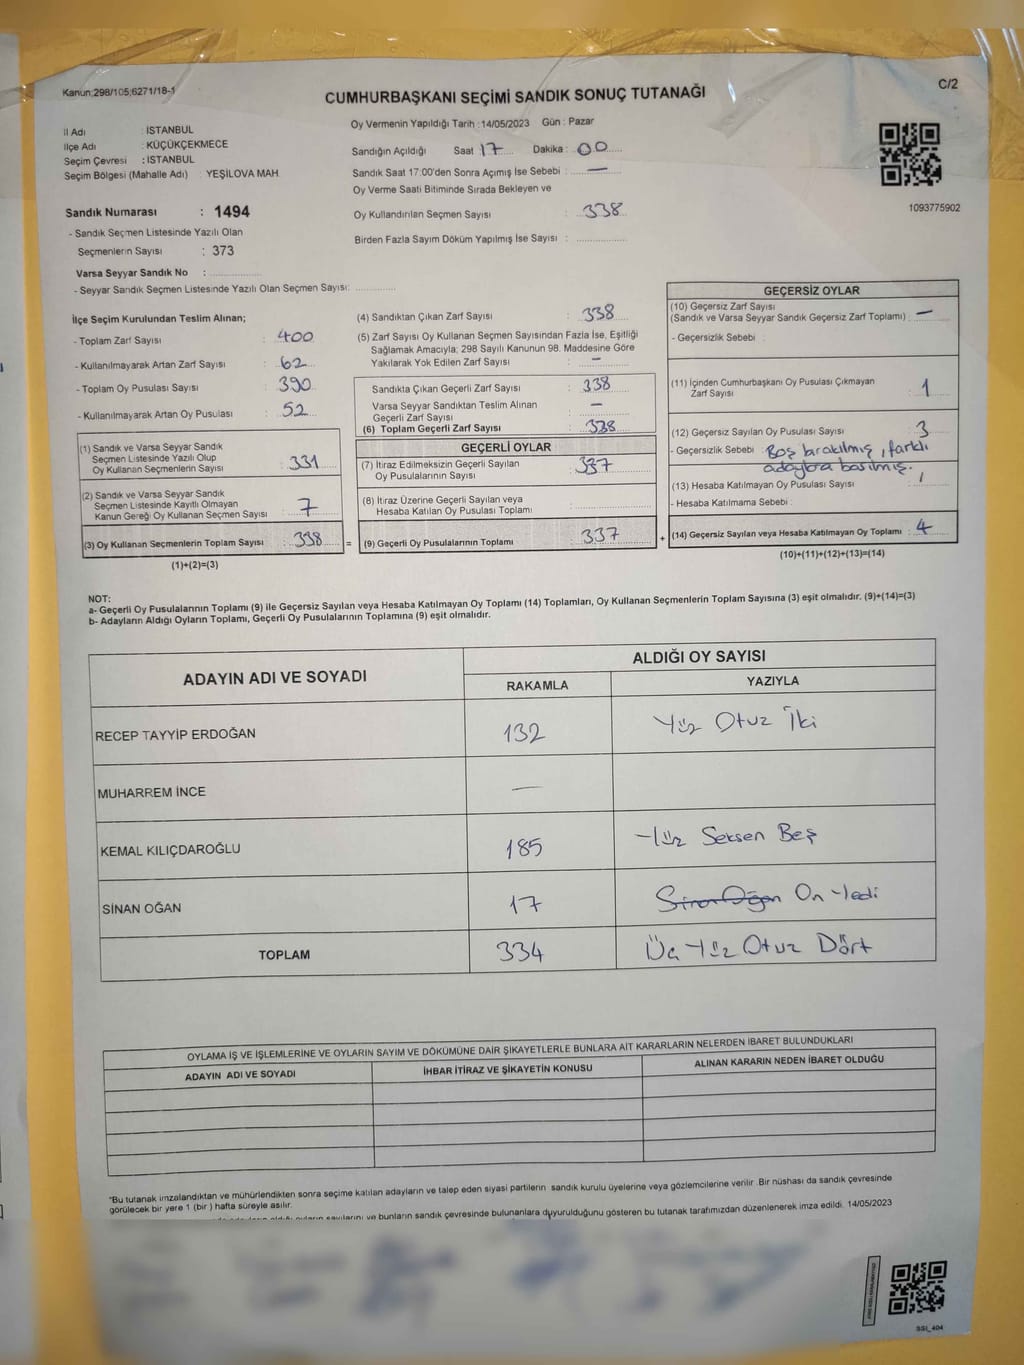 Kanun:298/105;6271/18-1
C/2
CUMHURBAŞKANI SEÇİMİ SANDIK SONUÇ TUTANAĞI
İl Adı : İSTANBUL
İlçe Adı : KÜÇÜKÇEKMECE
Seçim Çevresi : İSTANBUL
Seçim Bölgesi (Mahalle Adı) : YEŞİLOVA MAH.
Sandık Numarası : 1494
- Sandık Seçmen Listesinde Yazılı Olan
Seçmenlerin Sayısı : 373
Varsa Seyyar Sandık No :
- Seyyar Sandık Seçmen Listesinde Yazılı Olan Seçmen Sayısı:
Oy Vermenin Yapıldığı Tarih :14/05/2023 Gün : Pazar
Sandığın Açıldığı Saat : 17 Dakika : 00
Sandık Saat 17:00'den Sonra Açımış İse Sebebi : —
Oy Verme Saati Bitiminde Sırada Bekleyen ve
Oy Kullandırılan Seçmen Sayısı : 338
Birden Fazla Sayım Döküm Yapılmış İse Sayısı :
1093775902
İlçe Seçim Kurulundan Teslim Alınan;
- Toplam Zarf Sayısı : 400
- Kullanılmayarak Artan Zarf Sayısı : 62
- Toplam Oy Pusulası Sayısı : 390
- Kullanılmayarak Artan Oy Pusulası : 52
(1) Sandık ve Varsa Seyyar Sandık
Seçmen Listesinde Yazılı Olup
Oy Kullanan Seçmenlerin Sayısı : 331
(2) Sandık ve Varsa Seyyar Sandık
Seçmen Listesinde Kayıtlı Olmayan
Kanun Gereği Oy Kullanan Seçmen Sayısı : 7
(3) Oy Kullanan Seçmenlerin Toplam Sayısı : 338 =
(1)+(2)=(3)
(4) Sandıktan Çıkan Zarf Sayısı : 338
(5) Zarf Sayısı Oy Kullanan Seçmen Sayısından Fazla İse, Eşitliği
Sağlamak Amacıyla; 298 Sayılı Kanunun 98. Maddesine Göre
Yakılarak Yok Edilen Zarf Sayısı : —
Sandıkta Çıkan Geçerli Zarf Sayısı : 338
Varsa Seyyar Sandıktan Teslim Alınan
Geçerli Zarf Sayısı : —
(6) Toplam Geçerli Zarf Sayısı : 338
GEÇERLİ OYLAR
(7) İtiraz Edilmeksizin Geçerli Sayılan
Oy Pusulalarının Sayısı : 337
(8) İtiraz Üzerine Geçerli Sayılan veya
Hesaba Katılan Oy Pusulası Toplamı :
(9) Geçerli Oy Pusulalarının Toplamı : 337 +
GEÇERSİZ OYLAR
(10) Geçersiz Zarf Sayısı
(Sandık ve Varsa Seyyar Sandık Geçersiz Zarf Toplamı) : —
- Geçersizlik Sebebi :
(11) İçinden Cumhurbaşkanı Oy Pusulası Çıkmayan
Zarf Sayısı : 1
(12) Geçersiz Sayılan Oy Pusulası Sayısı : 3
- Geçersizlik Sebebi : Boş bırakılmış, farklı
adaylara basılmış.
(13) Hesaba Katılmayan Oy Pusulası Sayısı : /
- Hesaba Katılmama Sebebi :
(14) Geçersiz Sayılan veya Hesaba Katılmayan Oy Toplamı : 4
(10)+(11)+(12)+(13)=(14)
NOT:
a- Geçerli Oy Pusulalarının Toplamı (9) ile Geçersiz Sayılan veya Hesaba Katılmayan Oy Toplamı (14) Toplamları, Oy Kullanan Seçmenlerin Toplam Sayısına (3) eşit olmalıdır. (9)+(14)=(3)
b- Adayların Aldığı Oyların Toplamı, Geçerli Oy Pusulalarının Toplamına (9) eşit olmalıdır.
ADAYIN ADI VE SOYADI
ALDIĞI OY SAYISI
RAKAMLA YAZIYLA
RECEP TAYYİP ERDOĞAN 132 Yüz Otuz İki
MUHARREM İNCE —
KEMAL KILIÇDAROĞLU 185 Yüz Seksen Beş
SİNAN OĞAN 17 Sinan Oğan On Yedi
TOPLAM 334 Üç Yüz Otuz Dört
OYLAMA İŞ VE İŞLEMLERİNE VE OYLARIN SAYIM VE DÖKÜMÜNE DAİR ŞİKAYETLERLE BUNLARA AİT KARARLARIN NELERDEN İBARET BULUNDUKLARI
ADAYIN ADI VE SOYADI İHBAR İTİRAZ VE ŞİKAYETİN KONUSU ALINAN KARARIN NEDEN İBARET OLDUĞU
*Bu tutanak imzalandıktan ve mühürlendikten sonra seçime katılan adayların ve talep eden siyasi partilerin sandık kurulu üyelerine veya gözlemcilerine verilir .Bir nüshası da sandık çevresinde
görülecek bir yere 1 (bir ) hafta süreyle asılır.
ve bunların sandık çevresinde bulunanlara duyurulduğunu gösteren bu tutanak tarafımızdan düzenlenerek imza edildi. 14/05/2023
SSI_404